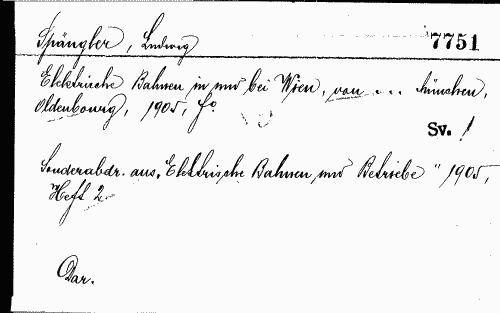 Spängler, Ludwig
7751
Elektrische Bahnen in und bei Wien, von ... München,
Oldenbourg, 1905, fo.
Sv. /
Sonderabdr. aus „Elektrische Bahnen und Betriebe" 1905,
Heft 2.
Dar.